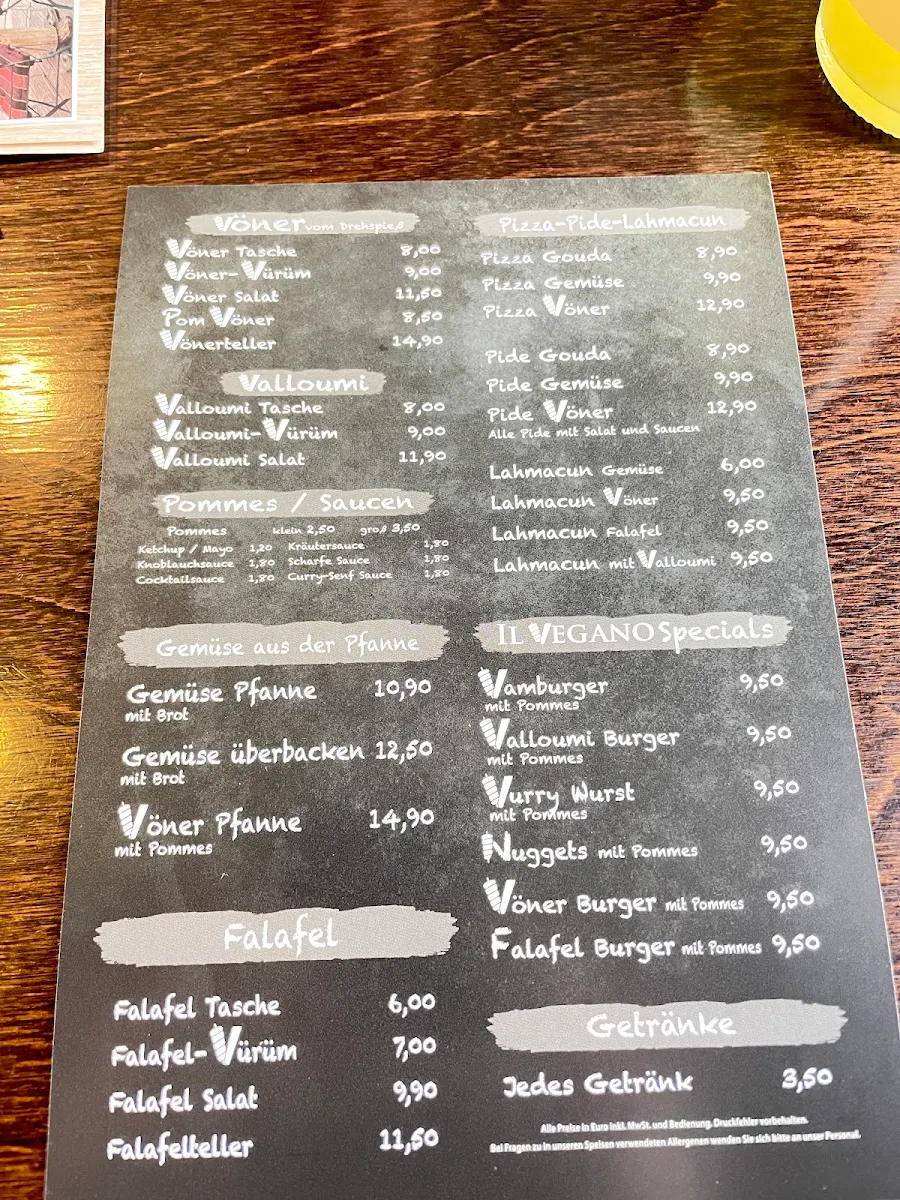 Vöner vom Drehspieß
Vöner Tasche 8,00
Vöner-Vürüm 9,00
Vöner Salat 11,50
Pom Vöner 8,50
Vönerteller 14,90
Valloumi
Valloumi Tasche 8,00
Valloumi-Vürüm 9,00
Valloumi Salat 11,90
Pommes / Saucen
Pommes klein 2,50 groß 3,50
Ketchup / Mayo 1,20 Kräutersauce 1,80
Knoblauchsauce 1,80 Scharfe Sauce 1,80
Cocktailsauce 1,80 Curry-Senf Sauce 1,80
Gemüse aus der Pfanne
Gemüse Pfanne 10,90
mit Brot
Gemüse überbacken 12,50
mit Brot
Vöner Pfanne 14,90
mit Pommes
Falafel
Falafel Tasche 6,00
Falafel-Vürüm 7,00
Falafel Salat 9,90
Falafelteller 11,50
Pizza-Pide-Lahmacun
Pizza Gouda 8,90
Pizza Gemüse 9,90
Pizza Vöner 12,90
Pide Gouda 8,90
Pide Gemüse 9,90
Pide Vöner 12,90
Alle Pide mit Salat und Saucen
Lahmacun Gemüse 6,00
Lahmacun Vöner 9,50
Lahmacun Falafel 9,50
Lahmacun mit Valloumi 9,50
IL VEGANO Specials
Vamburger 9,50
mit Pommes
Valloumi Burger 9,50
mit Pommes
Vurry Wurst 9,50
mit Pommes
Nuggets mit Pommes 9,50
Vöner Burger mit Pommes 9,50
Falafel Burger mit Pommes 9,50
Getränke
Jedes Getränk 3,50
Alle Preise in Euro inkl. MwSt. und Bedienung. Druckfehler vorbehalten.
Bei Fragen zu in unseren Speisen verwendeten Allergenen wenden Sie sich bitte an unser Personal.